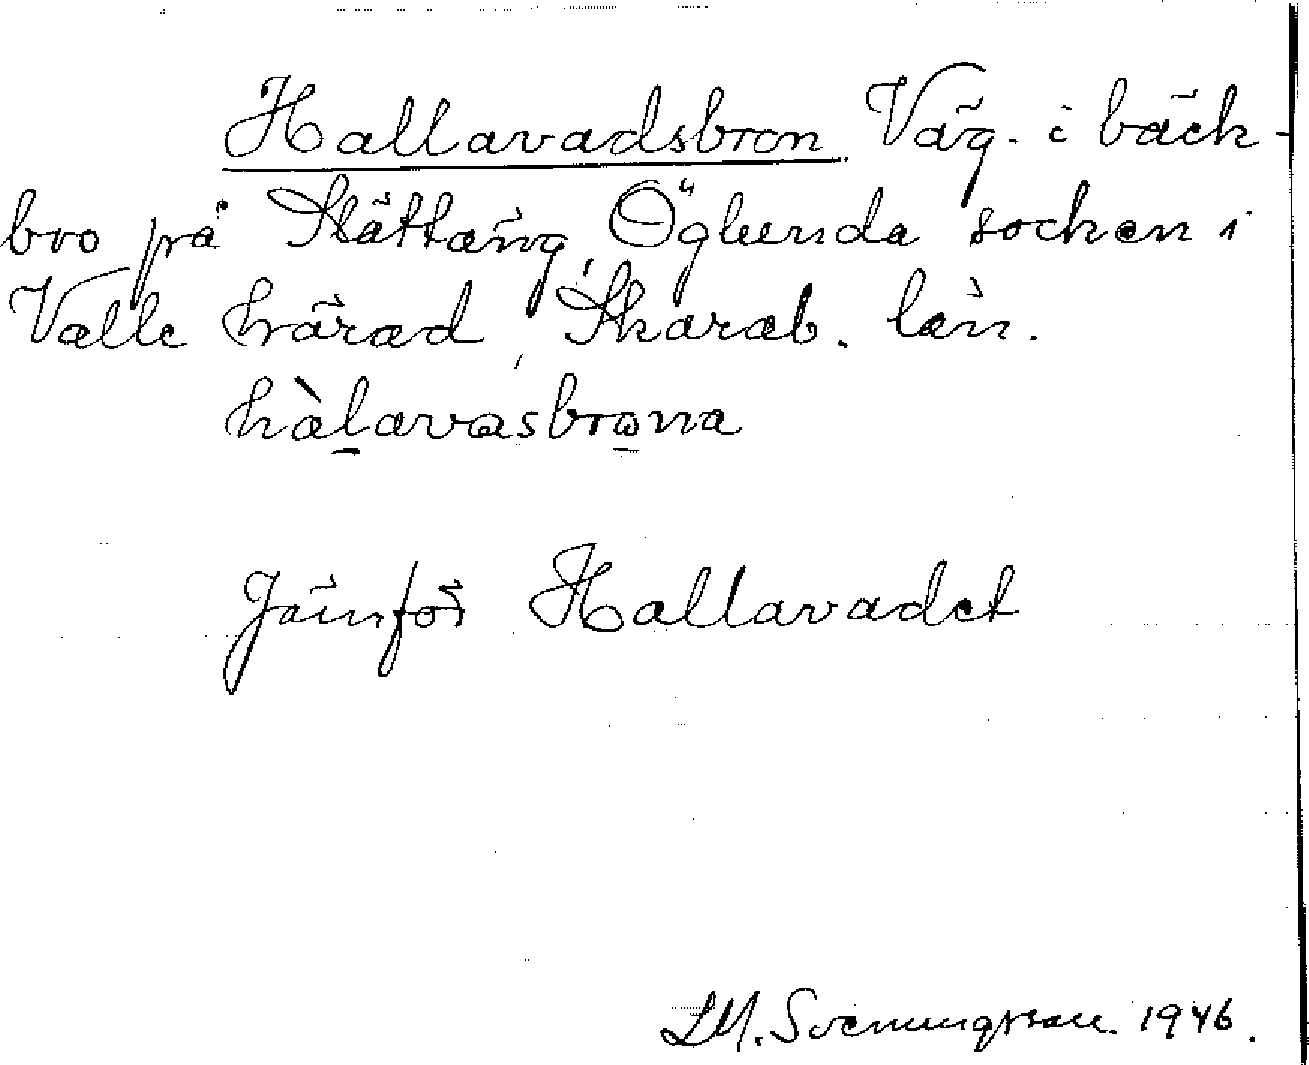 Hallavadsbron Väg- i bäck-
bro på Slättäng, Öglunda socken i
Valle härad, Skarab. län.
hàlavasbrona
Jämför Hallavadet
LM. Svenungsson 1946.